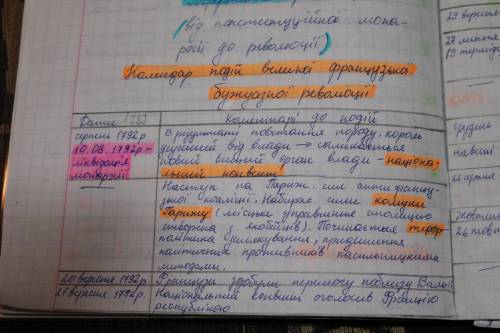 (від конституційної мона-
рхії до революції)
Календар подій великої французької
буржуазної революції
Дата
Коментарі до подій
серпень 1792р
10.08.1792р-
ліквідація
монархії
В результаті повстання народу, король
усунений від влади → скликається
новий вищий орган влади - націона-
льний конвент
Наступ на Париж. сил антифранцу-
зької коаліції. Набирає сили комуна
Парижу (міське управління столицею
створена з якобінців). Починається терор-
політика залякування, придушення
політичних противників насильницькими
методами.
20 вересня 1792р
Французи здобули перемогу поблизу Вальмі
21 вересня 1792р.
Національний конвент оголосив Францію
республікою
29 вересня
27 липня
(9 термідор
грудень
жовтень
26 жовт